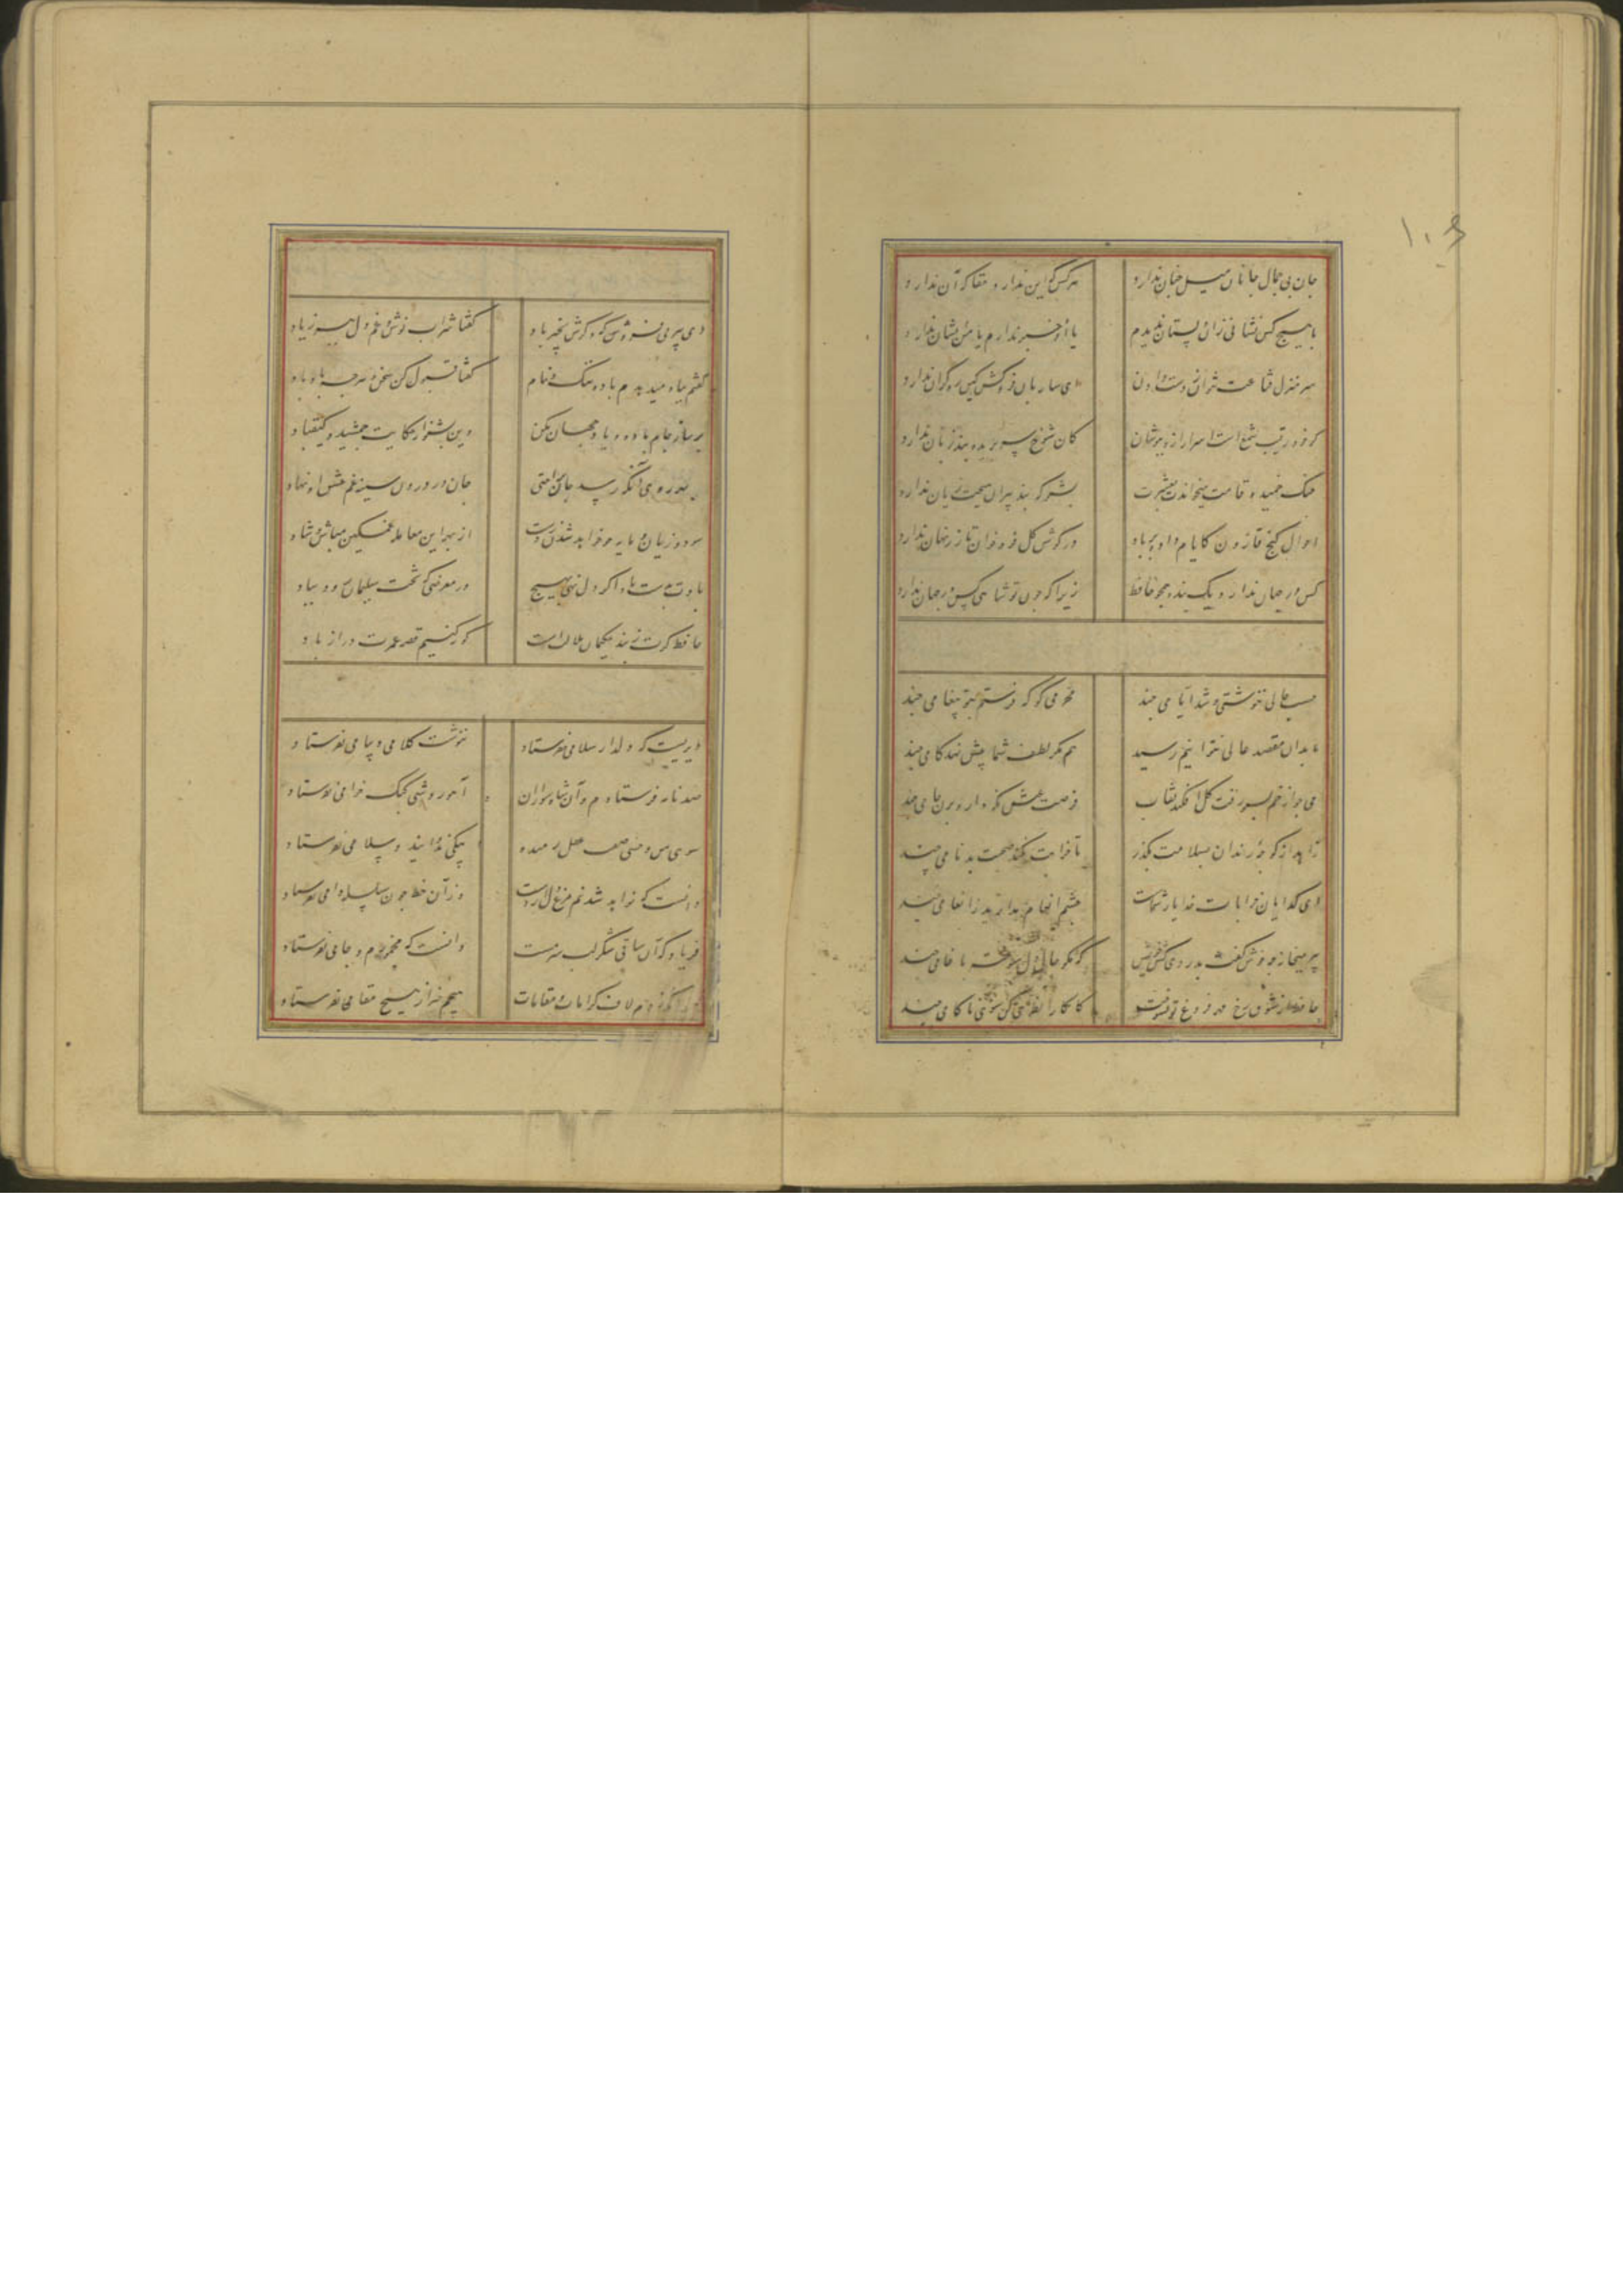 ۱۰۶
جان بی جمال جانان میل جنان ندارد
هرکس که این ندارد حقا که آن ندارد
با هیچ کس نشانی زان دلستان ندیدم
یا او خبر ندارم یا من نشان ندارد
سر منزل قناعت نتوان ز دست دادن
ای ساربان فروکش کین ره کران ندارد
گر خود رقیب شمع است اسرار ازو بپوشان
کان شوخ سر بریده بند زبان ندارد
چنگ خمیده قامت میخواندت بعشرت
بشنو که پند پیران هیچت زیان ندارد
احوال گنج قارون کایام داد بر باد
در گوش گل فرو خوان تا زر نهان ندارد
کس در جهان ندارد یک بنده همچو حافظ
زیرا که چون تو شاهی کس در جهان ندارد
حسب حالی ننوشتی و شد ایامی چند
محرمی کو که فرستم بتو پیغامی چند
ما بدان مقصد عالی نتوانیم رسید
هم مگر لطف شما پیش نهد گامی چند
می چو از خم بسبو رفت گل افکند نقاب
فرصت عیش نگه دار و بزن جامی چند
زاهد از کوچه رندان بسلامت بگذر
تا خرابت نکند صحبت بدنامی چند
ای گدایان خرابات خدا یار شماست
چشم انعام مدارید ز انعامی چند
پیر میخانه چه خوش گفت بدردی کش خویش
که مگو حال دل سوخته با خامی چند
حافظ از شوق رخ مهر فروغ تو بسوخت
کامگارا نظری کن سوی ناکامی چند
دی پیر می فروش که ذکرش بخیر باد
گفتا شراب نوش و غم دل ببر ز یاد
گفتم بباد میدهدم باده ننگ و نام
گفتا قبول کن سخن و هر چه باد باد
جان در درون سینه غم عشق او نهاد
سود و زیان و مایه چو خواهد شدن ز دست
از بهر این معامله غمگین مباش و شاد
بادت بدست باشد اگر دل نهی بهیچ
در معرضی که تخت سلیمان رود بباد
حافظ گرت ز پند حکیمان ملالت است
کوته کنیم قصه عمرت دراز باد
دیریست که دلدار سلامی نفرستاد
ننوشت کلامی و پیامی نفرستاد
صد نامه فرستادم و آن شاه سواران
سوی من وحشی صفت عقل رمیده
آهو روشی کبک خرامی نفرستاد
دانست که خواهد شدنم مرغ دل از دست
وز آن خط چون سلسله دامی نفرستاد
فریاد که آن ساقی شکر لب سرمست
دانست که مخمورم و جامی نفرستاد
چندانکه زدم لاف کرامات و مقامات
هیچم خبر از هیچ مقامی نفرستاد